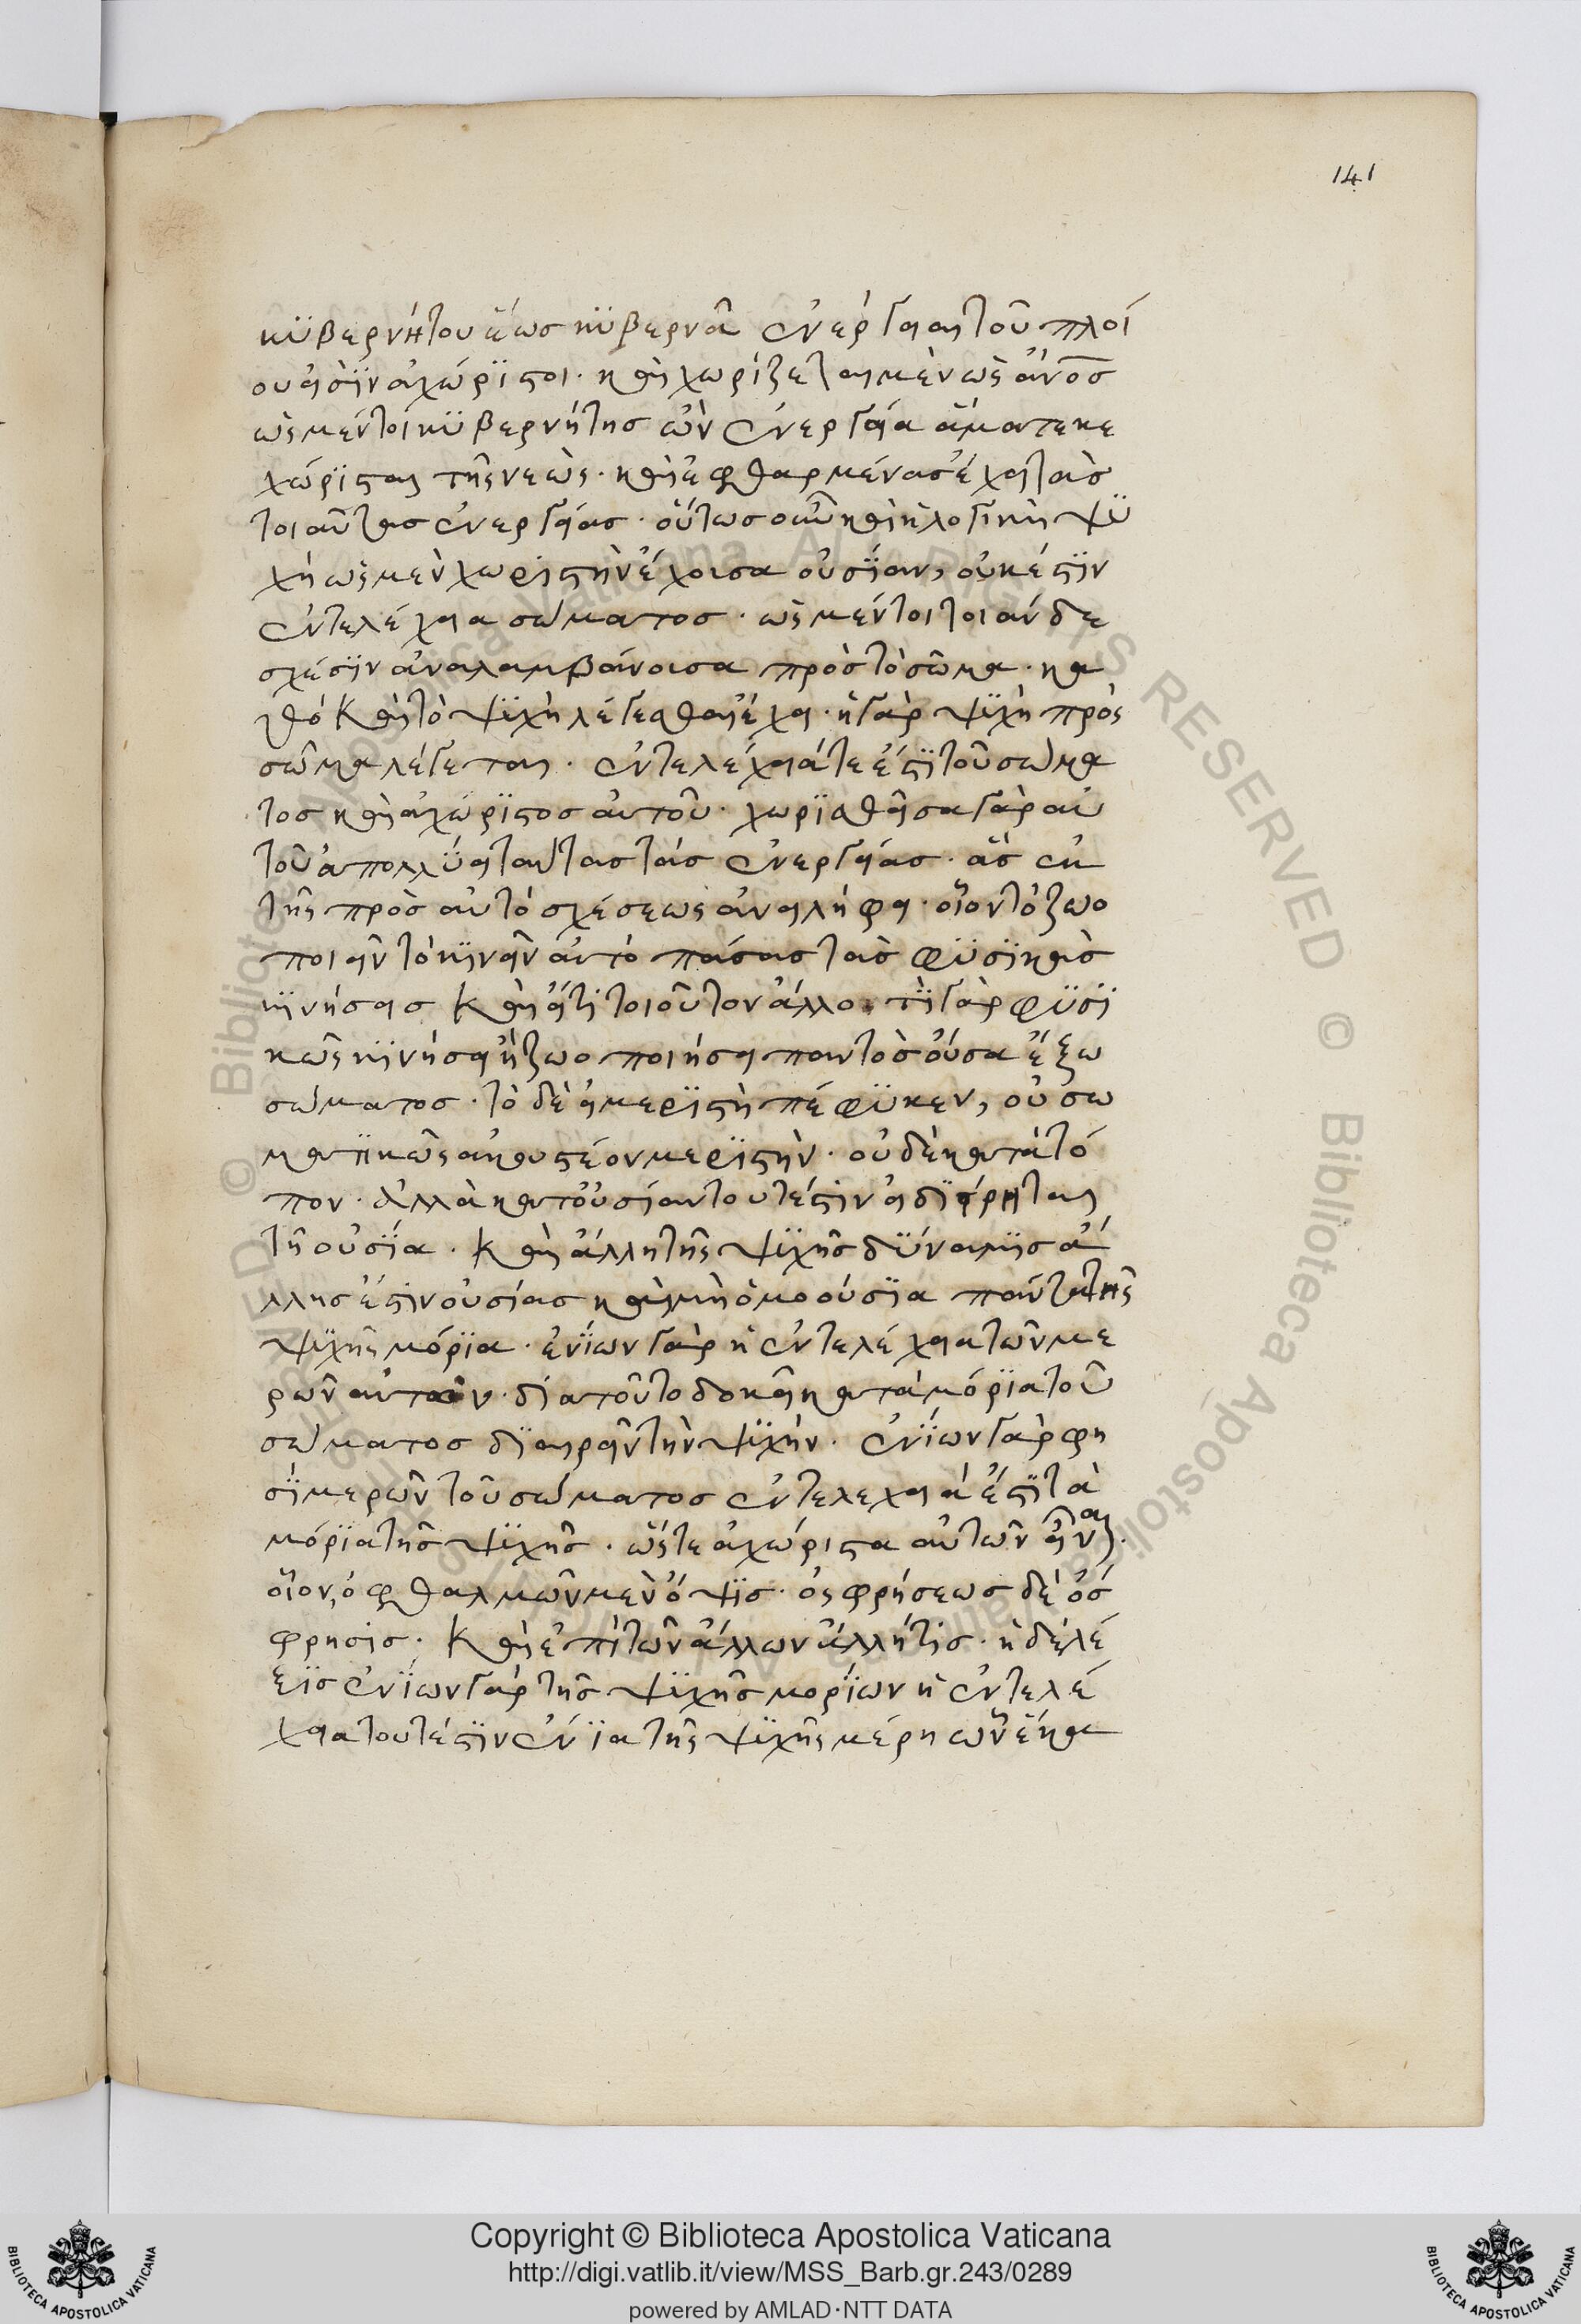 141
κυβερνήτου ἕως κυβερνᾶ ἐνέργειαι τοῦ πλοί
ου εἰσὶν ἀχώριστοι. καὶ χωρίζεται μὲν ὡς ἄνος
ὡς μέντοι κυβερνήτης ὢν ἐνεργεία ἅμα τε κε
χώρισται τῆς νεὼς. καὶ ἐφθαρμένας ἔχει τὰς
τοιαύτας ἐνεργείας. οὕτως οὖν καὶ ἡ λογικὴ ψυ
χὴ ὡς μὲν χωριστὴν ἔχουσα οὐσίαν, οὐκ ἔστιν
ἐντελέχεια σώματος. ὡς μέντοι τοιάνδε
σχέσιν ἀναλαμβάνουσα πρὸς τὸ σῶμα. κα
θό καὶ τὸ ψυχὴ λέγεσθαι ἔχει. ἡ γὰρ ψυχὴ πρὸς
σῶμα λέγεται. ἐντελέχειά τε ἐστὶ τοῦ σώμα
τος καὶ ἀχώριστος αὐτοῦ. χωρισθεῖσα γὰρ αὐ
τοῦ ἀπολλύει ταύτας τάς ἐνεργείας. ἃς ἐκ
τῆς πρὸς αὐτό σχέσεως ἀνείληφει. οἷον τὸ ζωο
ποιεῖν τὸ κινεῖν αὐτό πάσας τὰς φυσικὰς
κινήσεις καὶ εἴ τι τοιοῦτον ἄλλο. τί γὰρ φυσι
κῶς κινήσει ἢ ζωοποιήσει παντὸς οὖσα ἔξω
σώματος. τὸ δὲ εἰ μεριστὴ πέφυκεν, οὐ σω
ματικῶς ἀκουστέον μεριστὴν. οὐδὲ κατὰ τό
πον. ἀλλὰ κατ' οὐσίαν τουτέστιν εἰ διῄρηται
τῆ οὐσία. καὶ ἄλλη τῆς ψυχῆς δύναμις ἄ
λλης ἐστὶν οὐσίας καὶ μὴ ὁμοούσια πάντα τῆς
ψυχῆς μόρια. ἐνίων γὰρ ἡ ἐντελέχεια τῶν με
ρῶν αὐτῶν. διατοῦτο δοκεῖ κατὰ μόρια τοῦ
σώματος διαιρεῖν τὴν ψυχὴν. ἐνίων γὰρ φη
σὶ μερῶν τοῦ σώματος ἐντελεχειά ἐστι τὰ
μόρια τῆς ψυχῆς. ὥστε ἀχώριστα αὐτῶν εἶναι.
οἷον, ὀφθαλμῶν μὲν ὄψις. ὀσφρήσεως δὲ ὄσ
φρησις. καὶ ἐπὶ τῶν ἄλλων ἄλλή τις. ἡ δὲ λέ
ξις ἐνίων γὰρ τῆς ψυχῆς μορίων ἡ ἐντελέ
χεια τουτέστιν ἔνια τῆς ψυχῆς μέρη ὧν ἕκα
© Biblioteca Apostolica Vaticana ALL RIGHTS RESERVED
Copyright © Biblioteca Apostolica Vaticana
http://digi.vatlib.it/view/MSS_Barb.gr.243/0289
powered by AMLAD·NTT DATA
BIBLIOTECA APOSTOLICA VATICANA
BIBLIOTECA APOSTOLICA VATICANA